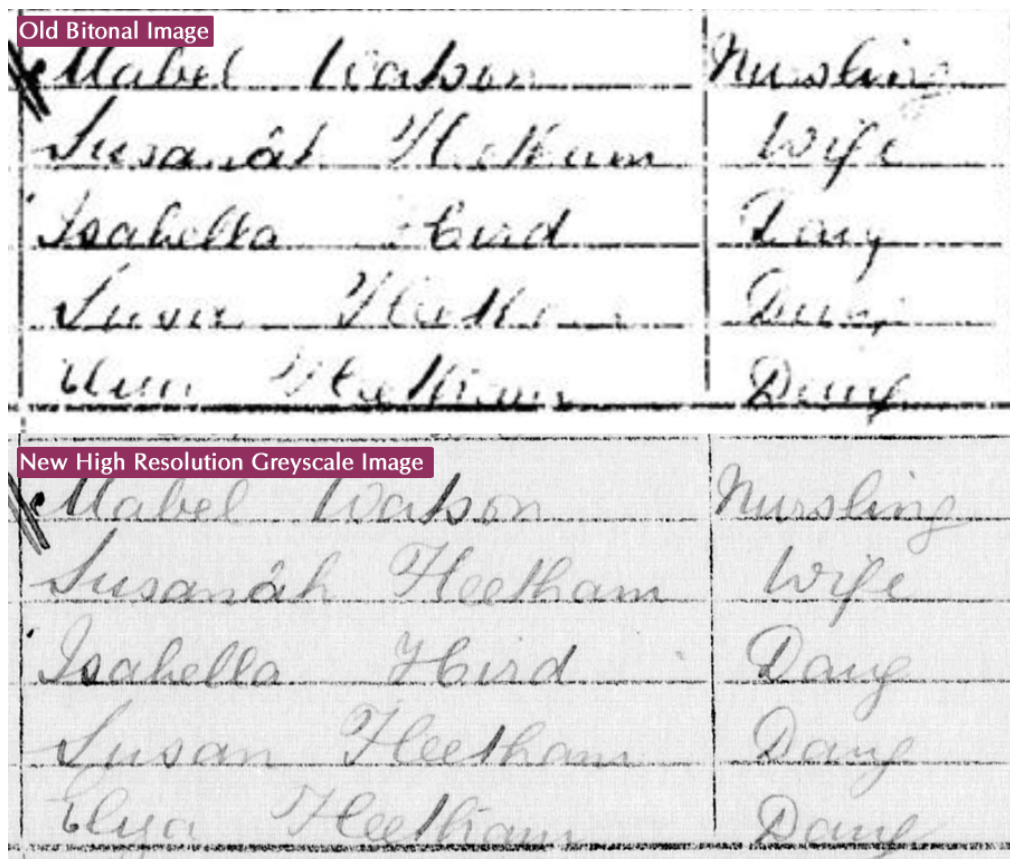 Old Bitonal Image
Mabel Watson Nursling
Susanah Wife
Isabella Hird Daug
Daug
New High Resolution Greyscale Image
Mabel Watson Nursling
Susanah Fleetham Wife
Isabella Hird Daug
Susan Fleetham Daug
Eliza Fleetham Daug